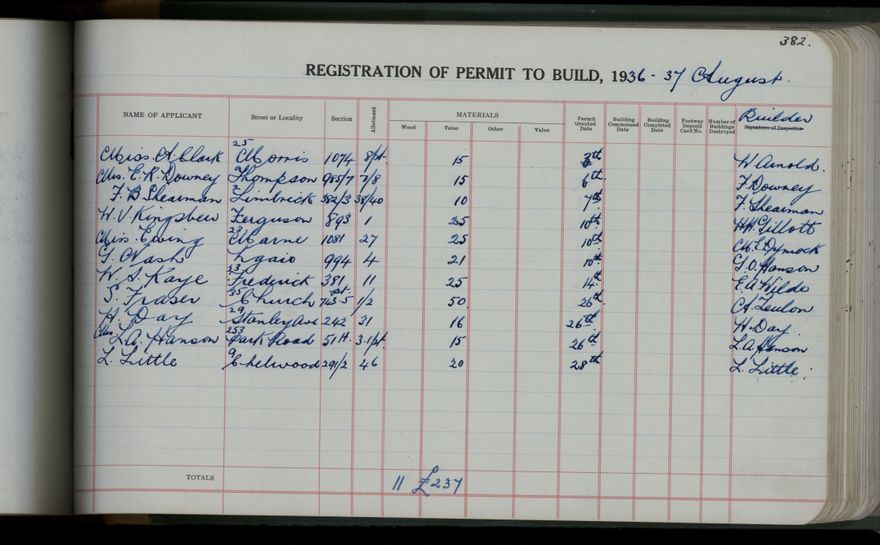 382.
REGISTRATION OF PERMIT TO BUILD, 1936-37 August.
NAME OF APPLICANT Street or Locality Section Allotment MATERIALS Wood Value Other Value Permit Granted Date Building Commenced Date Building Completed Date Footway Deposit Card No. Number of Buildings Destroyed Builder Signature of Inspector
Miss. A Clark 25 Morris 1074 8/pt. 15 3th W Arnold.
Mrs. E. R. Downey Thompson 985/7 7/8 15 6th F. Downey
F. B Shearman 2 Limbrick 382/3 38/40 10 7th F. Shearman
W. V. Kingsbeer Ferguson 893 1 25 10th H.H. Gillott
Miss. Ewing 23 Marne 1081 27 25 10th Dymock
G. Nash Ngaio 994 4 21 10th G. O. Hanson
W. S. Kaye 23 Frederick 381 11 25 14th E. A. Wilde
S. Fraser 35 Church St. 743-5 1/2 50 26th
H. Day 29 Stanley Ave 242 31 16 26th H. Day.
Mrs. L. A. Hanson 253 Park Road 511 3.1/pt. 15 26th L. A. Hanson
L. Little 9 Chelwood 291/2 46 20 28th L. Little.
TOTALS 11 £237